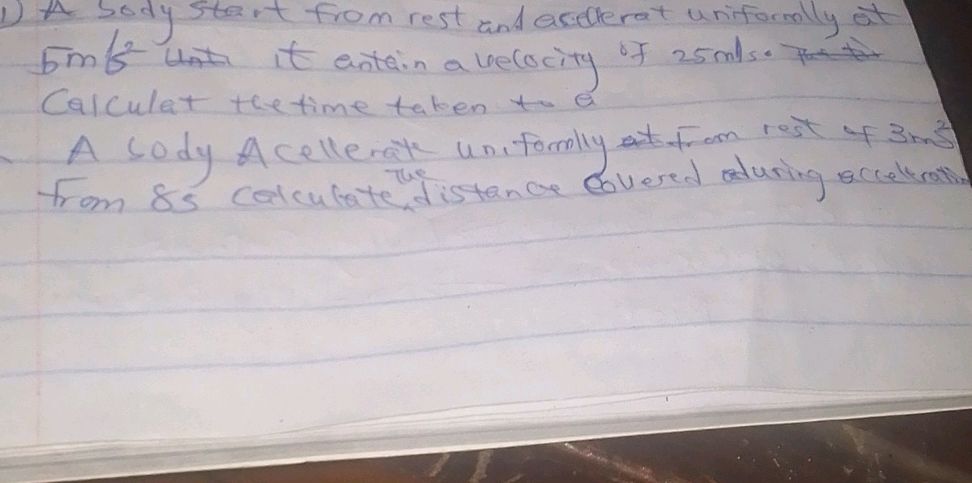 1) A body start from rest and accellerat uniformolly at
5m/s² it antain a velocity of 25m/s.
Calculat the time taken to a
A body Acellerate uniformolly from rest of 3ms²
from 8s calculate the distance covered during acceleration